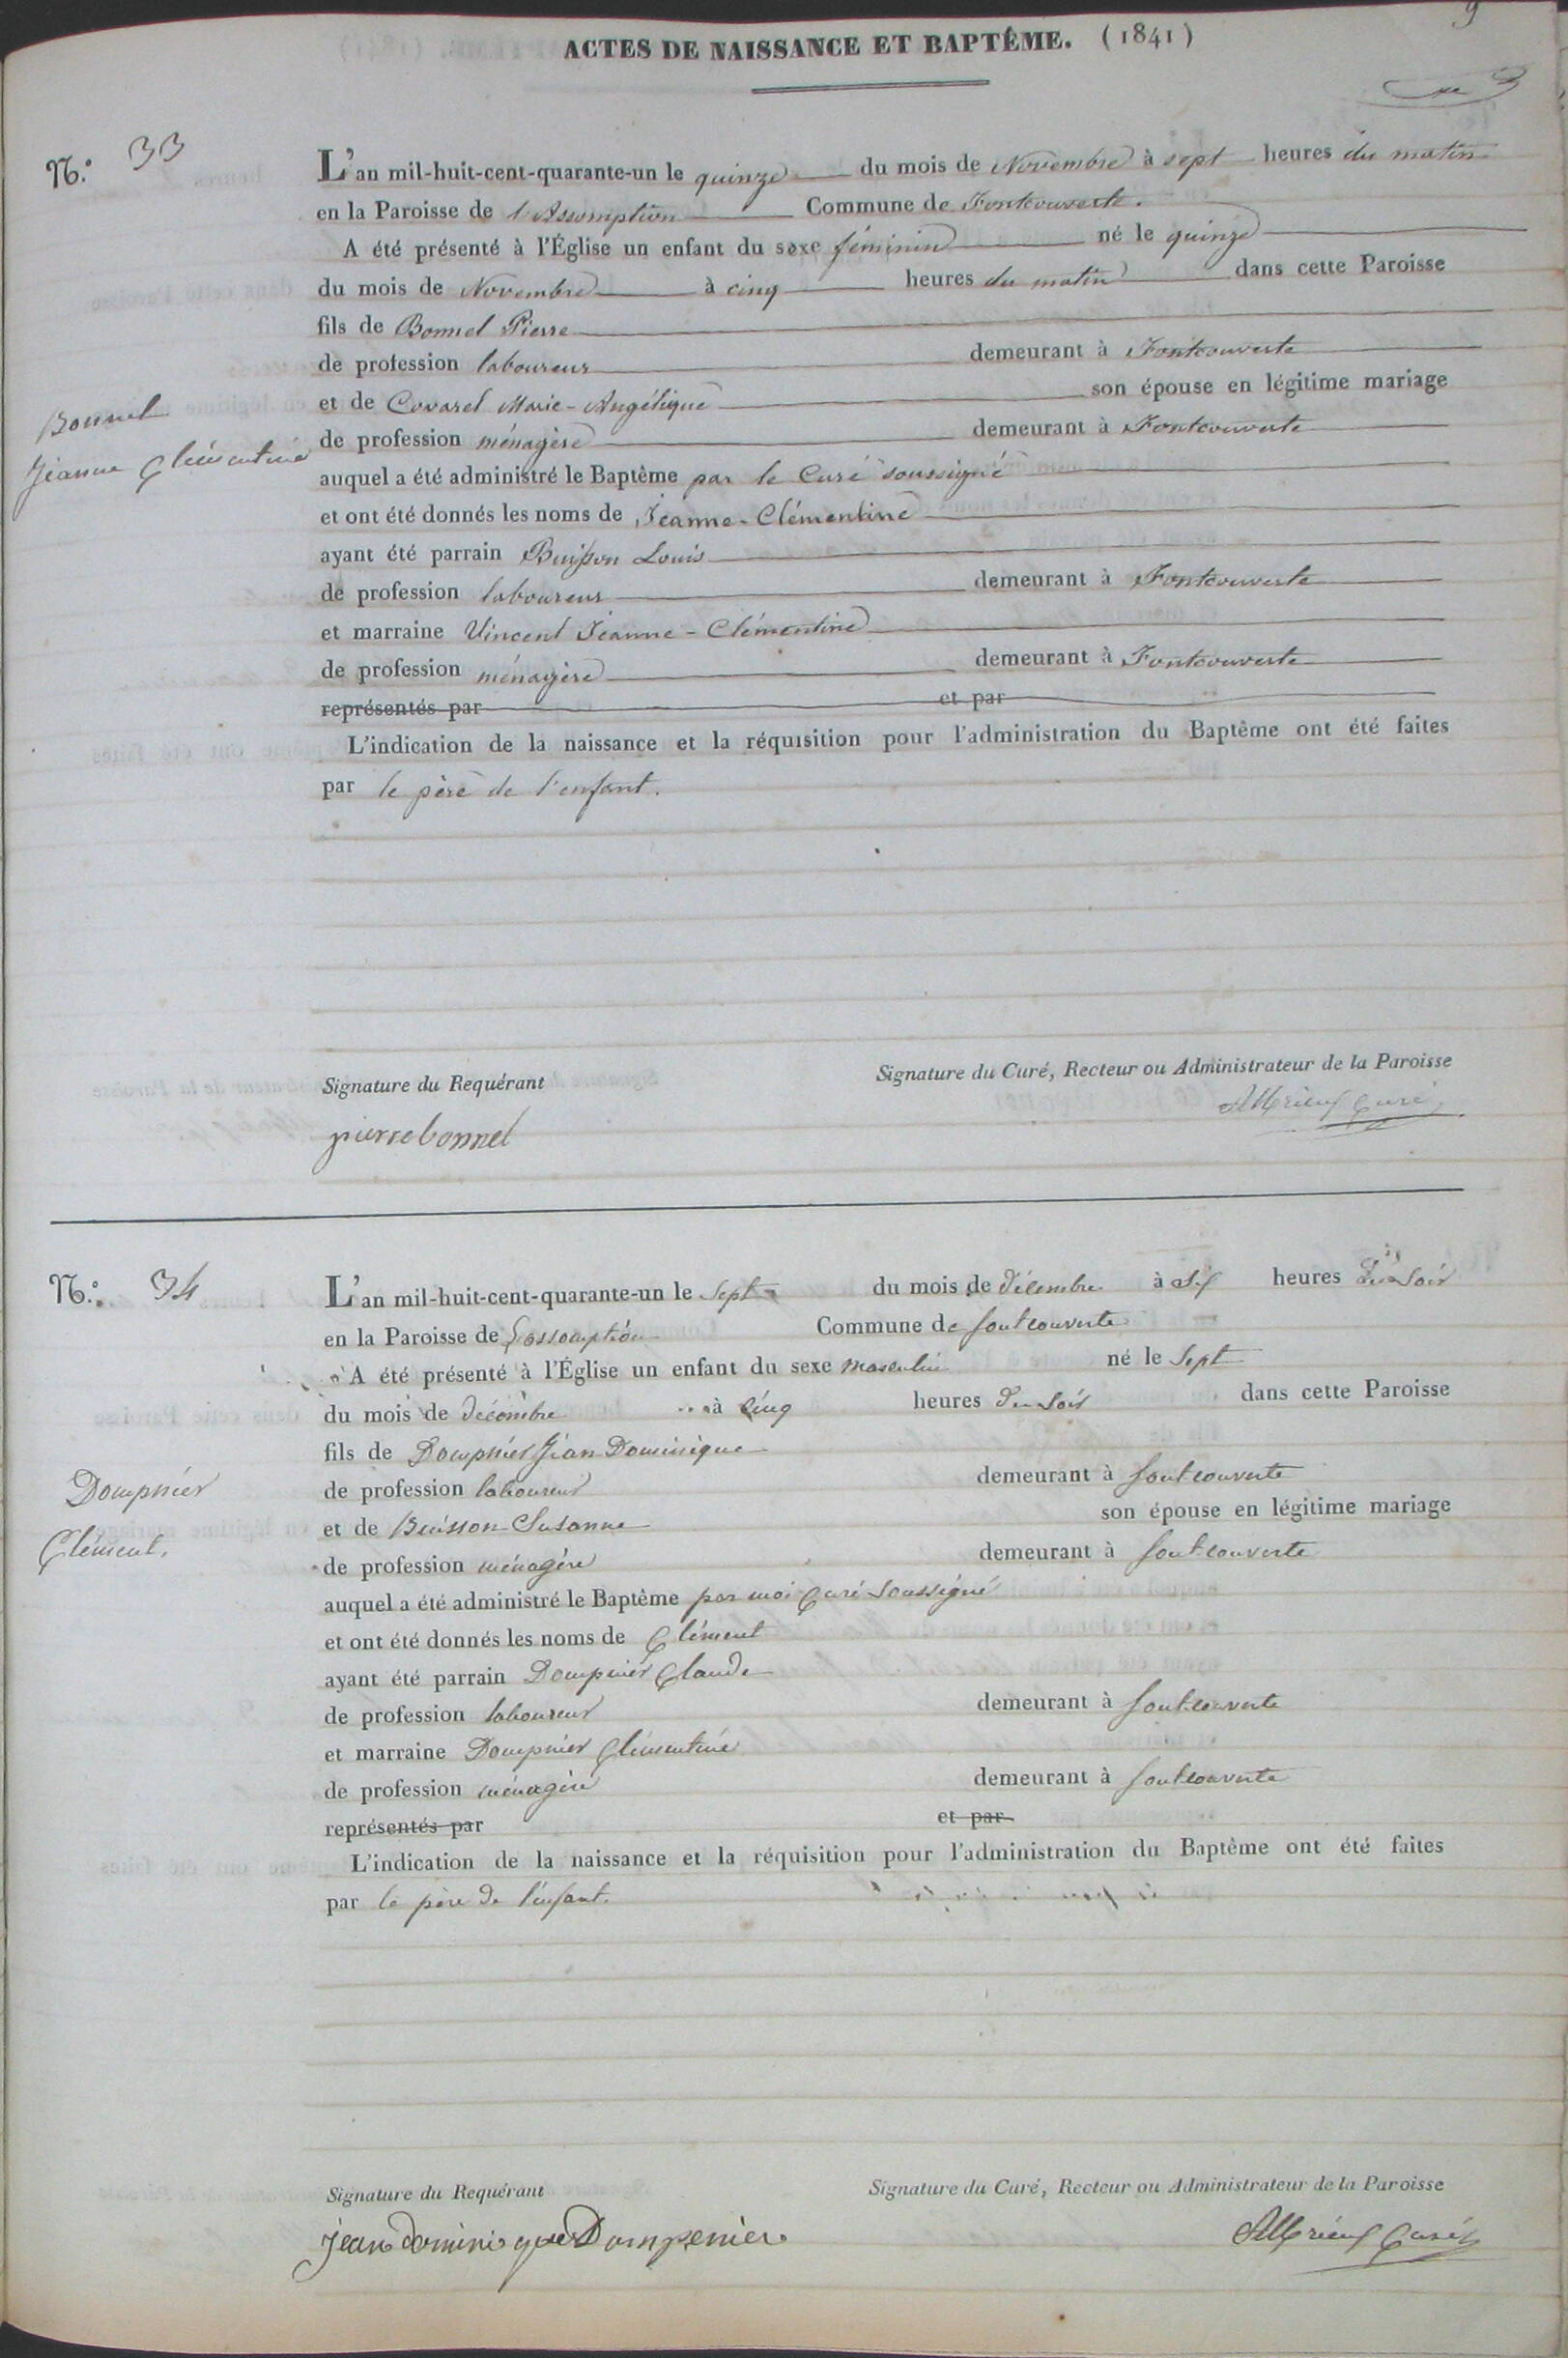 9
ACTES DE NAISSANCE ET BAPTÊME. (1841)
N.º 33
L'an mil-huit-cent-quarante-un le quinze du mois de Novembre à sept heures du matin
en la Paroisse de l'Assomption Commune de Fontcouverte.
A été présenté à l'Église un enfant du sexe féminin né le quinze
du mois de Novembre à cinq heures du matin dans cette Paroisse
fils de Bonnel Pierre
de profession laboureur demeurant à Fontcouverte
et de Covarel Marie-Angélique son épouse en légitime mariage
Bonnel
Jeanne Clémentine
de profession ménagère demeurant à Fontcouverte
auquel a été administré le Baptême par le Curé soussigné
et ont été donnés les noms de Jeanne-Clémentine
ayant été parrain Buisson Louis
de profession laboureur demeurant à Fontcouverte
et marraine Vincent Jeanne-Clémentine
de profession ménagère demeurant à Fontcouverte
représentés par et par
L'indication de la naissance et la réquisition pour l'administration du Baptême ont été faites
par le père de l'enfant.
Signature du Requérant Signature du Curé, Recteur ou Administrateur de la Paroisse
pierre bonnel curé
N.º 34
L'an mil-huit-cent-quarante-un le sept du mois de décembre à six heures du soir
en la Paroisse de Lassomption Commune de fontcouverte
A été présenté à l'Église un enfant du sexe masculin né le sept
du mois de décembre à cinq heures du soir dans cette Paroisse
fils de Dompnier Jean Dominique
de profession laboureur demeurant à fontcouverte
et de Buisson Susanne son épouse en légitime mariage
Dompnier
Clément.
de profession ménagère demeurant à fontcouverte
auquel a été administré le Baptême par moi curé soussigné
et ont été donnés les noms de Clément
ayant été parrain Dompnier Claude
de profession laboureur demeurant à fontcouverte
et marraine Dompnier Clémentine
de profession ménagère demeurant à fontcouverte
représentés par et par
L'indication de la naissance et la réquisition pour l'administration du Baptême ont été faites
par le père de l'enfant.
Signature du Requérant Signature du Curé, Recteur ou Administrateur de la Paroisse
jean dominique Dompenier curé